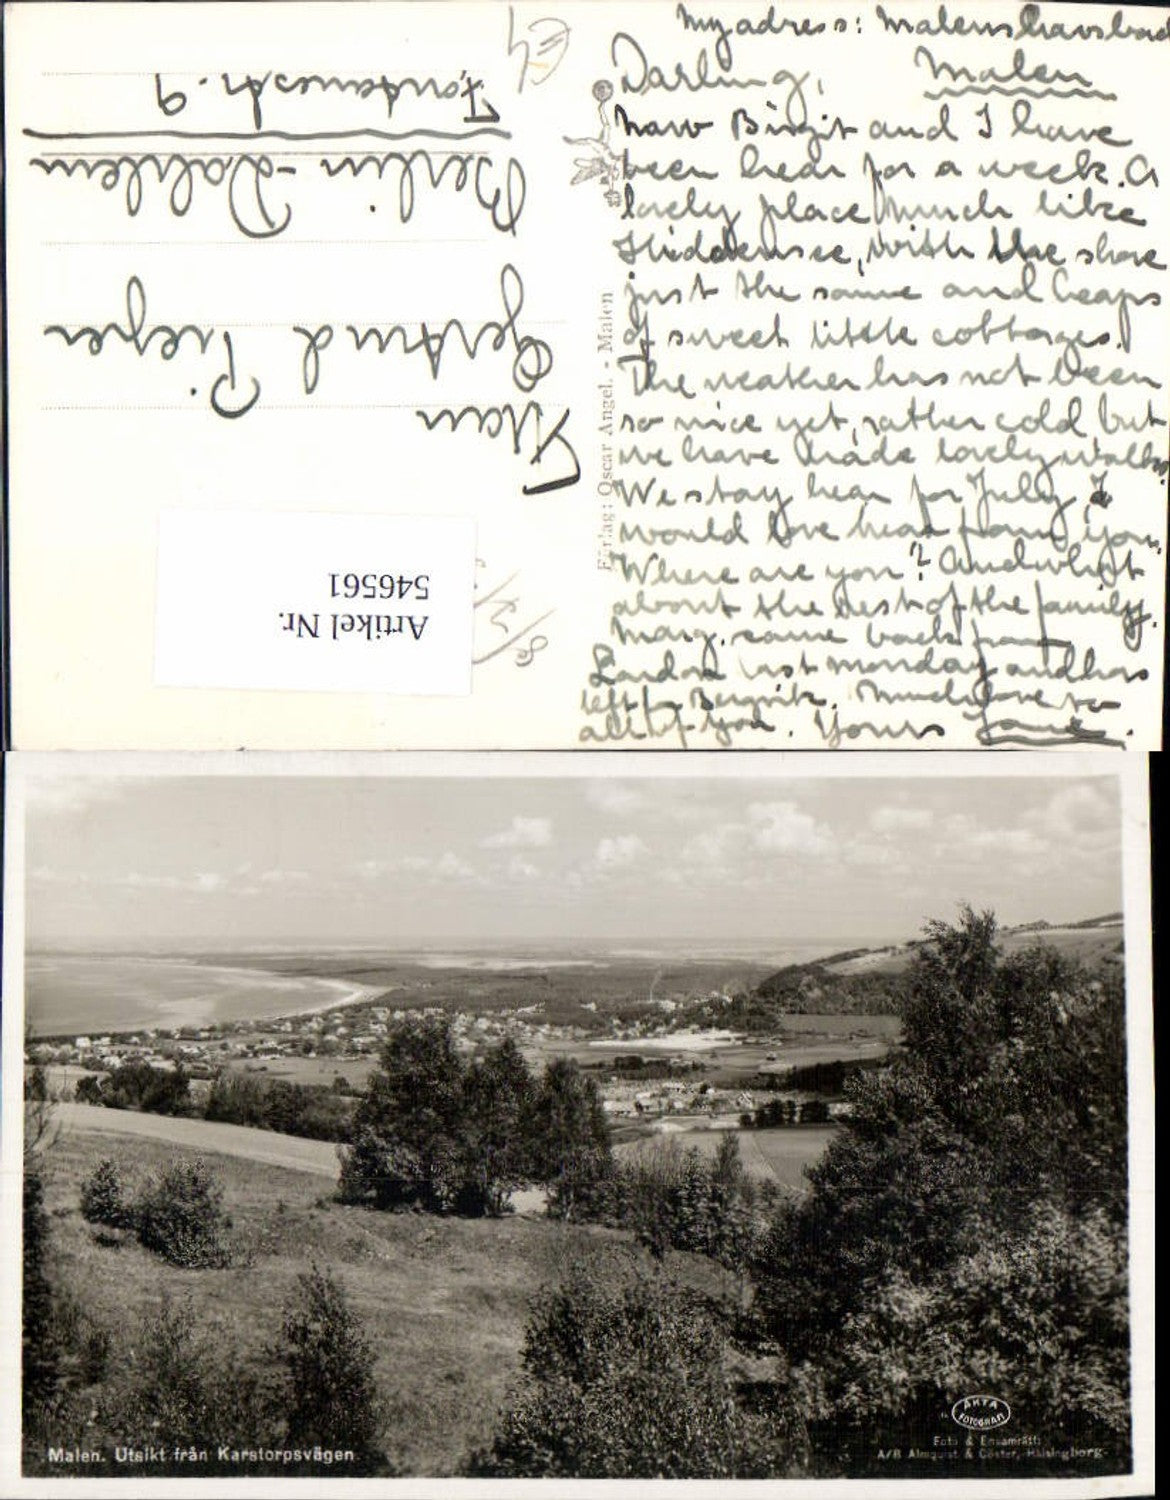 My adress: Malenshavsbad
Malen
Darling,
now Birgit and I have
been hear for a week. A
lovely place much like
Hiddensee, with the shore
just the same and heaps
of sweet little cottages.
The weather has not been
so nice yet, rather cold but
we have made lovely walks.
We stay hear for July I
would love hear from you.
Where are you? And what
about the rest of the family.
Mary. came back from
London last monday and has
left for Bergvik. Much love to
all of you. Yours Jane.
Förlag: Oscar Angel. - Malen
Frau
Gertrud Pieper
Berlin-Dahlem
Fontanestr. 9
Artikel Nr.
546561
Malen. Utsikt från Karstorpsvägen
ÄKTA
FOTOGRAFI
Foto & Ensamrätt:
A/B Almquist & Cöster, Hälsingborg